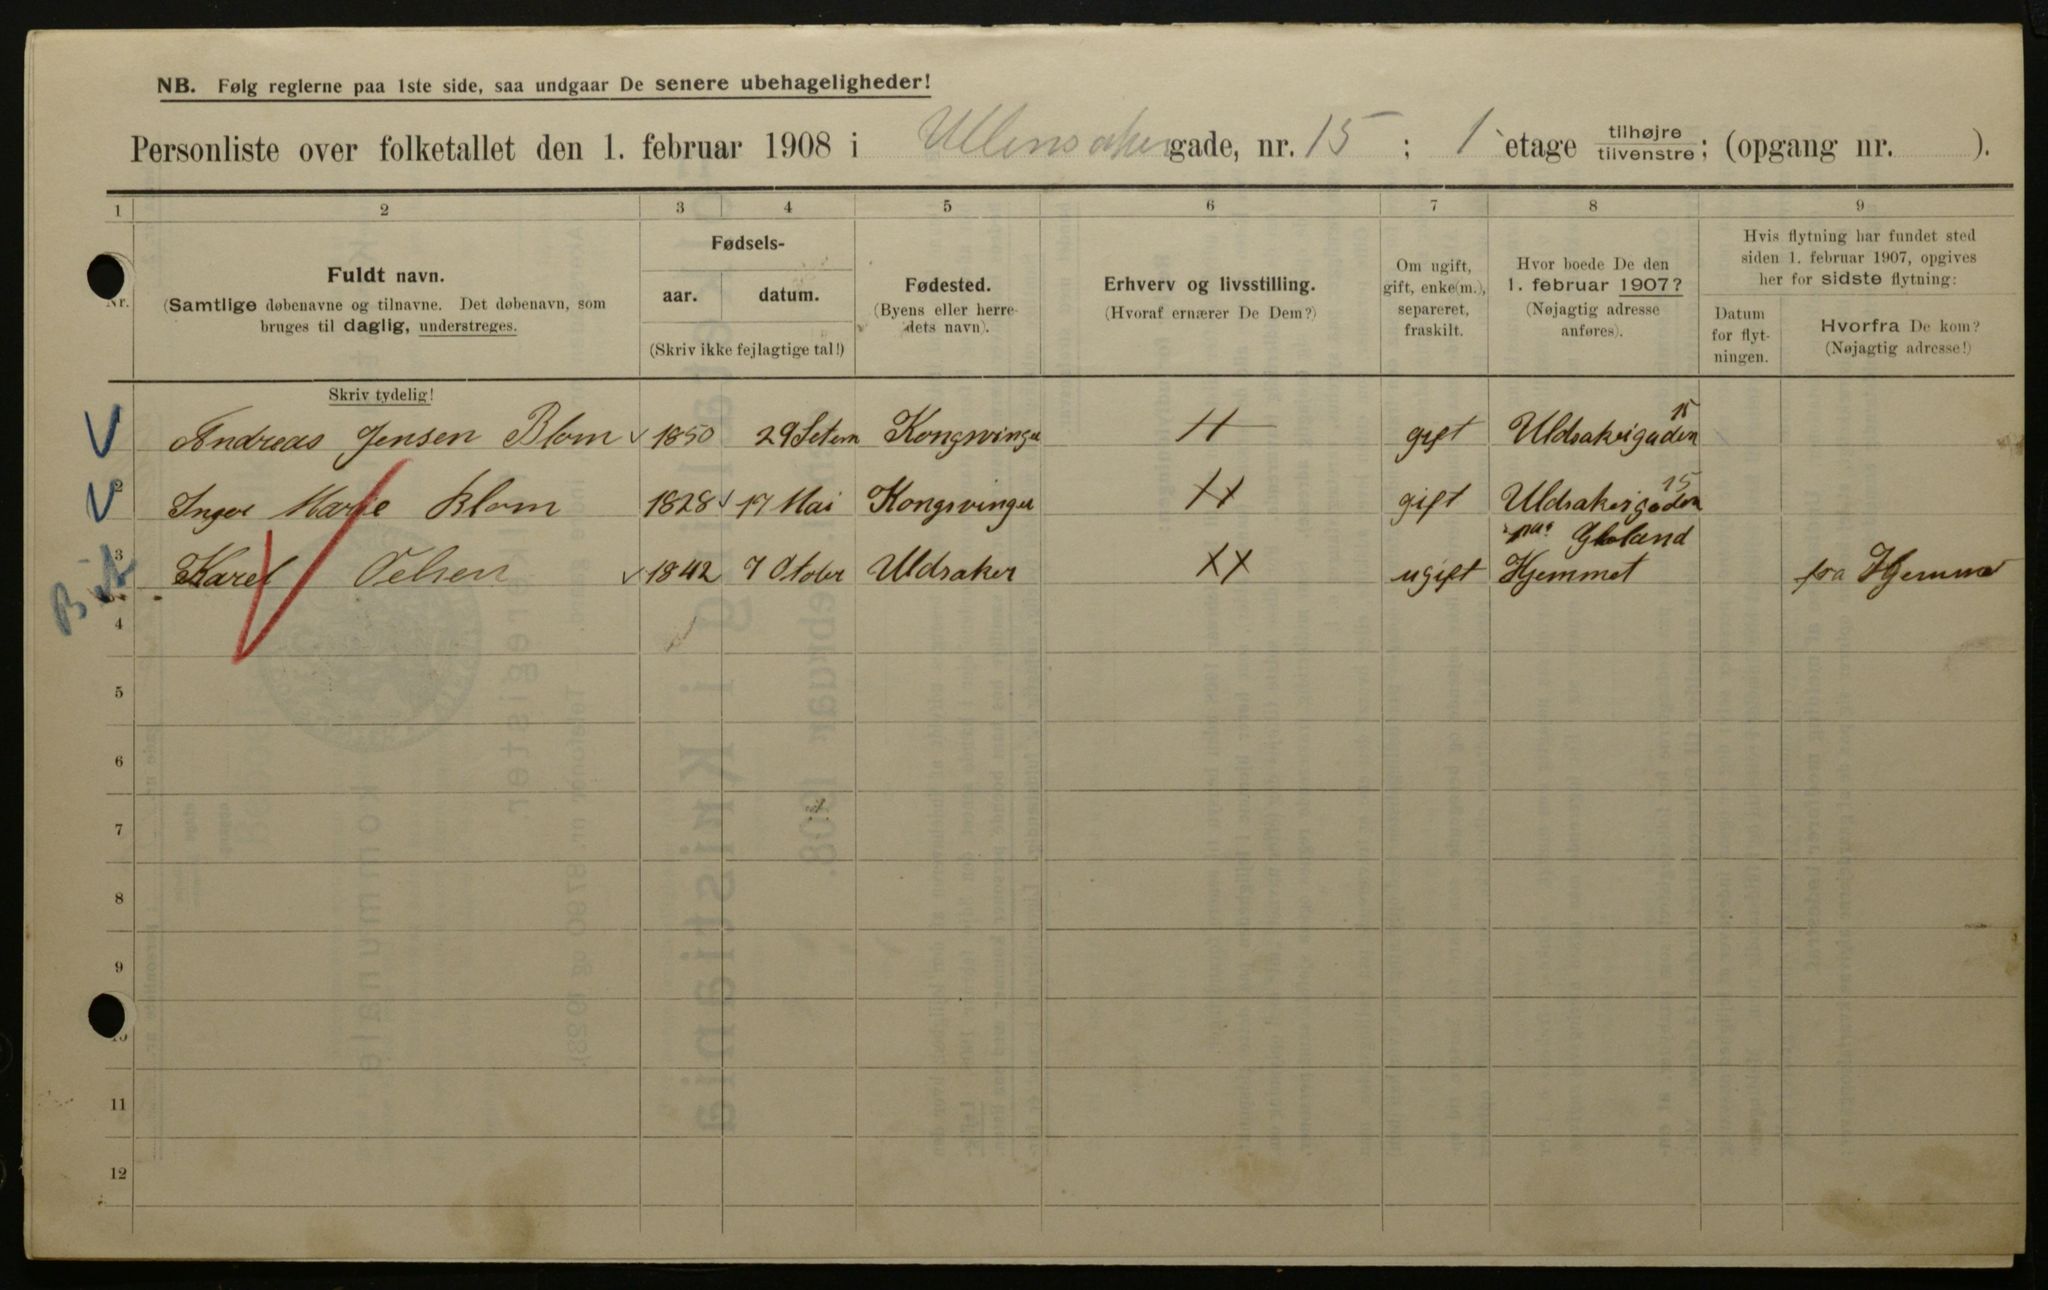 NB. Følg reglerne paa 1ste side, saa undgaar De senere ubehageligheder!
Personliste over folketallet den 1. februar 1908 i Ullensakergade, nr. 15; 1 etage tilhøjre tilvenstre; (opgang nr. ).
1 2 3 4 5 6 7 8 9
Nr.
Fuldt navn.
(Samtlige døbenavne og tilnavne. Det døbenavn, som
bruges til daglig, understreges.
Fødsels-
aar. datum.
(Skriv ikke fejlagtige tal!)
Fødested.
(Byens eller herre-
dets navn).
Erhverv og livsstilling.
(Hvoraf ernærer De Dem?)
Om ugift,
gift, enke(m.),
separeret,
fraskilt.
Hvor boede De den
1. februar 1907?
(Nøjagtig adresse
anføres).
Hvis flytning har fundet sted
siden 1. februar 1907, opgives
her for sidste flytning:
Datum
for flyt-
ningen.
Hvorfra De kom?
(Nøjagtig adresse!)
Skriv tydelig!
Andreas Jensen Blom 1850 29 Setem Kongsvinger gift Uldsakergaden 15
2 Inger Marie Blom 1828 17 Mai Kongsvinger gift Uldsakergaden 15
paa
3 Karel Oelsen 1842 7 Otober Uldsaker XX ugift Hjemmet fra Hjemme
4
5
6
7
8
9
10
11
12